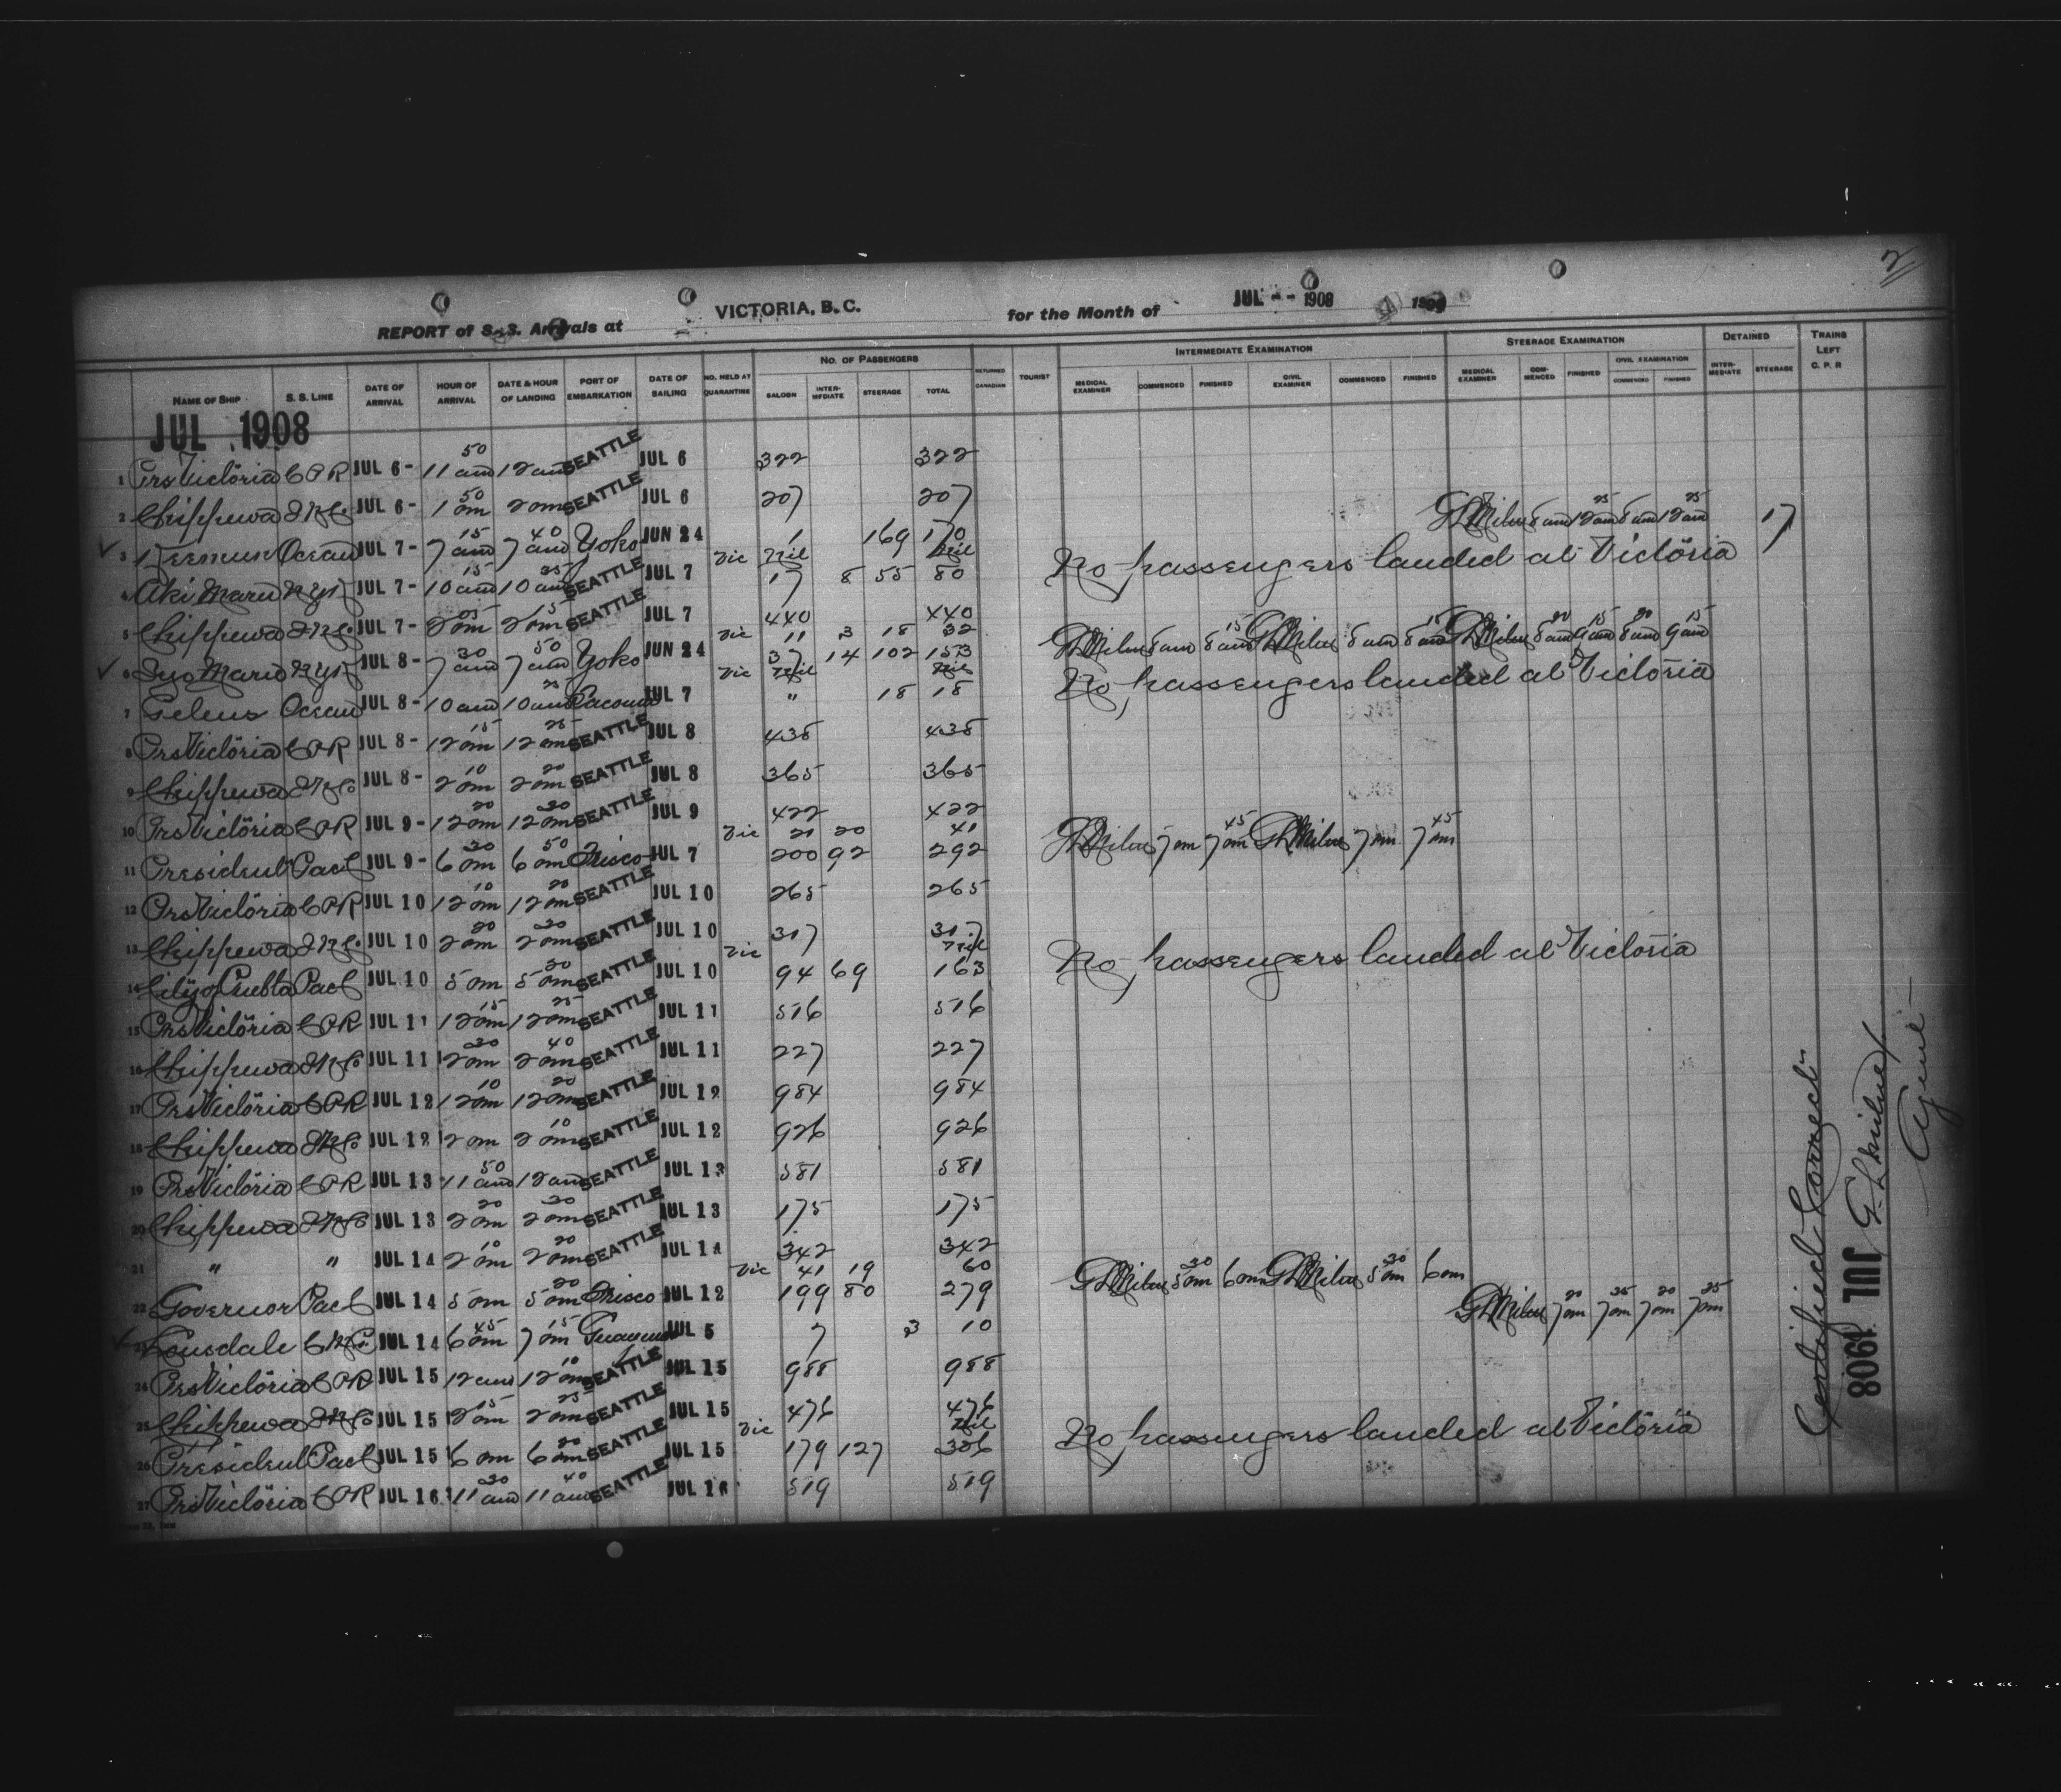 2
REPORT of S.S. Arrivals at VICTORIA, B.C. for the Month of JUL - - 1908
NAME OF SHIP S. S. LINE DATE OF ARRIVAL HOUR OF ARRIVAL DATE & HOUR OF LANDING PORT OF EMBARKATION DATE OF SAILING NO. HELD AT QUARANTINE NO. OF PASSENGERS SALOON INTERMEDIATE STEERAGE TOTAL RETURNED CANADIAN TOURIST INTERMEDIATE EXAMINATION MEDICAL EXAMINER COMMENCED FINISHED CIVIL EXAMINER COMMENCED FINISHED STEERAGE EXAMINATION MEDICAL EXAMINER COMMENCED FINISHED CIVIL EXAMINATION COMMENCED FINISHED DETAINED INTERMEDIATE STEERAGE TRAINS LEFT C. P. R
JUL 1908
1 Prs Victoria CPR JUL 6- 11 50 am 12 am SEATTLE JUL 6 322 322
2 Chippewa JUL 6- 1 50 pm 2 pm SEATTLE JUL 6 207 207
3 Keemun Ocean JUL 7- 7 15 am 7 40 am Yoko JUN 24 1 169 170 GLMilne 8 am 12 25 am 8 am 12 25 am 17
Vic Nil Nil No passengers landed at Victoria
4 Aki Maru NYK JUL 7- 10 15 am 10 35 am SEATTLE JUL 7 17 8 55 80
5 Chippewa JUL 7- 2 05 pm 2 15 pm SEATTLE JUL 7 440 440
Vic 11 3 18 32 GLMilne 8 am 8 15 am GLMilne 8 am 8 15 am GLMilne 8 20 am 9 15 am 8 20 am 9 15 am
6 Iyo Maru NYK JUL 8- 7 30 am 7 50 am Yoko JUN 24 37 14 102 153
Vic Nil Nil No passengers landed at Victoria
7 Peleus Ocean JUL 8- 10 am 10 25 am Tacoma JUL 7 " 18 18
8 Prs Victoria CPR JUL 8- 12 15 pm 12 25 pm SEATTLE JUL 8 438 438
9 Chippewa JUL 8- 2 10 pm 2 20 pm SEATTLE JUL 8 365 365
10 Prs Victoria CPR JUL 9- 12 20 pm 12 30 pm SEATTLE JUL 9 422 422
Vic 21 20 41 GLMilne 7 pm 7 45 pm GLMilne 7 pm 7 45 pm
11 President Pact JUL 9- 6 30 pm 6 50 pm Frisco JUL 7 200 92 292
12 Prs Victoria CPR JUL 10 12 10 pm 12 20 pm SEATTLE JUL 10 265 265
13 Chippewa JUL 10 2 20 pm 2 30 pm SEATTLE JUL 10 317 317
Vic Nil No passengers landed at Victoria
14 City of Puebla Pact JUL 10 5 pm 5 30 pm SEATTLE JUL 10 94 69 163
15 Prs Victoria CPR JUL 11 12 15 pm 12 25 pm SEATTLE JUL 11 516 516
16 Chippewa JUL 11 2 30 pm 2 40 pm SEATTLE JUL 11 227 227
17 Prs Victoria CPR JUL 12 12 10 pm 12 20 pm SEATTLE JUL 12 984 984
18 Chippewa JUL 12 2 pm 2 10 pm SEATTLE JUL 12 926 926
19 Prs Victoria CPR JUL 13 11 50 am 12 am SEATTLE JUL 13 581 581
20 Chippewa JUL 13 2 20 pm 2 30 pm SEATTLE JUL 13 175 175
21 " " JUL 14 2 10 pm 2 20 pm SEATTLE JUL 14 342 342
Vic 41 19 60 GLMilne 5 30 pm 6 pm GLMilne 5 30 pm 6 pm
22 Governor Pact JUL 14 5 pm 5 20 pm Frisco JUL 12 199 80 279
23 Lonsdale JUL 14 6 45 pm 7 15 pm JUL 5 7 3 10 GLMilne 7 20 pm 7 35 pm 7 20 pm 7 35 pm
24 Prs Victoria CPR JUL 15 12 am 12 10 pm SEATTLE JUL 15 988 988
25 Chippewa JUL 15 2 15 pm 2 25 pm SEATTLE JUL 15 476 476
Vic Nil No passengers landed at Victoria
26 President Pact JUL 15 6 pm 6 20 pm SEATTLE JUL 15 179 127 306
27 Prs Victoria CPR JUL 16 11 30 am 11 40 am SEATTLE JUL 16 519 519
Certified Correct
G.L. Milne
Agent
JUL 1908